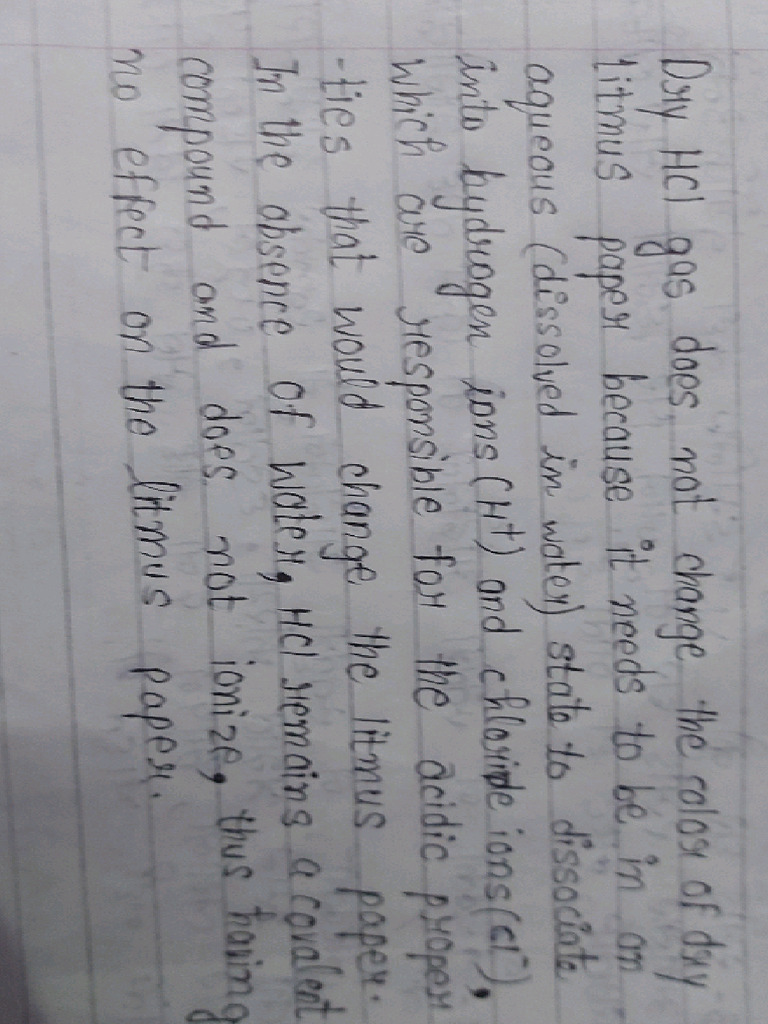 Dry HCl gas does not change the color of dry
litmus paper because it needs to be in an
aqueous (dissolved in water) state to dissociate
into hydrogen ions (H+) and chloride ions (Cl-),
which are responsible for the acidic proper
-ties that would change the litmus paper.
In the absence of water, HCl remains a covalent
compound and does not ionize, thus having
no effect on the litmus paper.